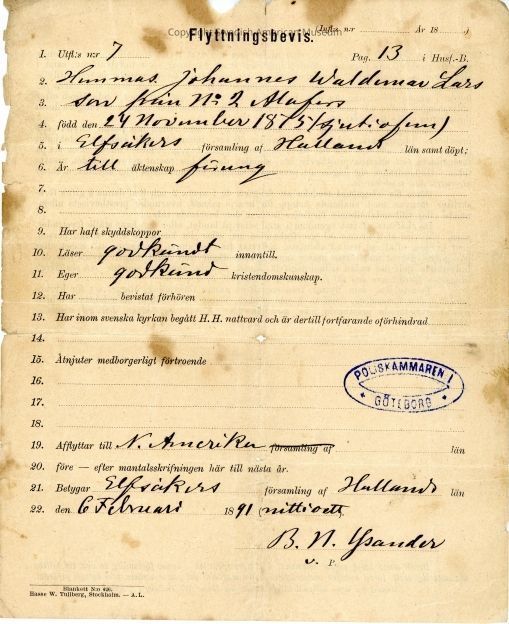 Copyright Swedish American Museum
(Infl.: n:r År 18 )
Flyttningsbevis.
1. Utfl.: n:r 7 Pag. 13 i Husf.-B.
2. Hemmas. Johannes Waldemar Lars
3. son från No 2 Alafors
4. född den 24 November 1875 (sjutiofem)
5. i Elfsåkers församling af Hallands län samt döpt;
6. Är till äktenskap för ung
7.
8.
9. Har haft skyddskoppor
10. Läser godkändt innantill.
11. Eger godkänd kristendomskunskap.
12. Har bevistat förhören
13. Har inom svenska kyrkan begått H.H. nattvard och är dertill fortfarande oförhindrad
14.
15. Åtnjuter medborgerligt förtroende
16.
17.
18.
POLISKAMMAREN I
GÖTEBORG
19. Afflyttar till N. Amerika församling af län
20. före — efter mantalsskrifningen här till nästa år.
21. Betygar Elfsåkers församling af Hallands län
22. den 6 Februari 1891 (nittioett)
B. N. Ysander
v. P.
Blankett N:o 420.
Hasse W. Tullberg, Stockholm. — A. L.